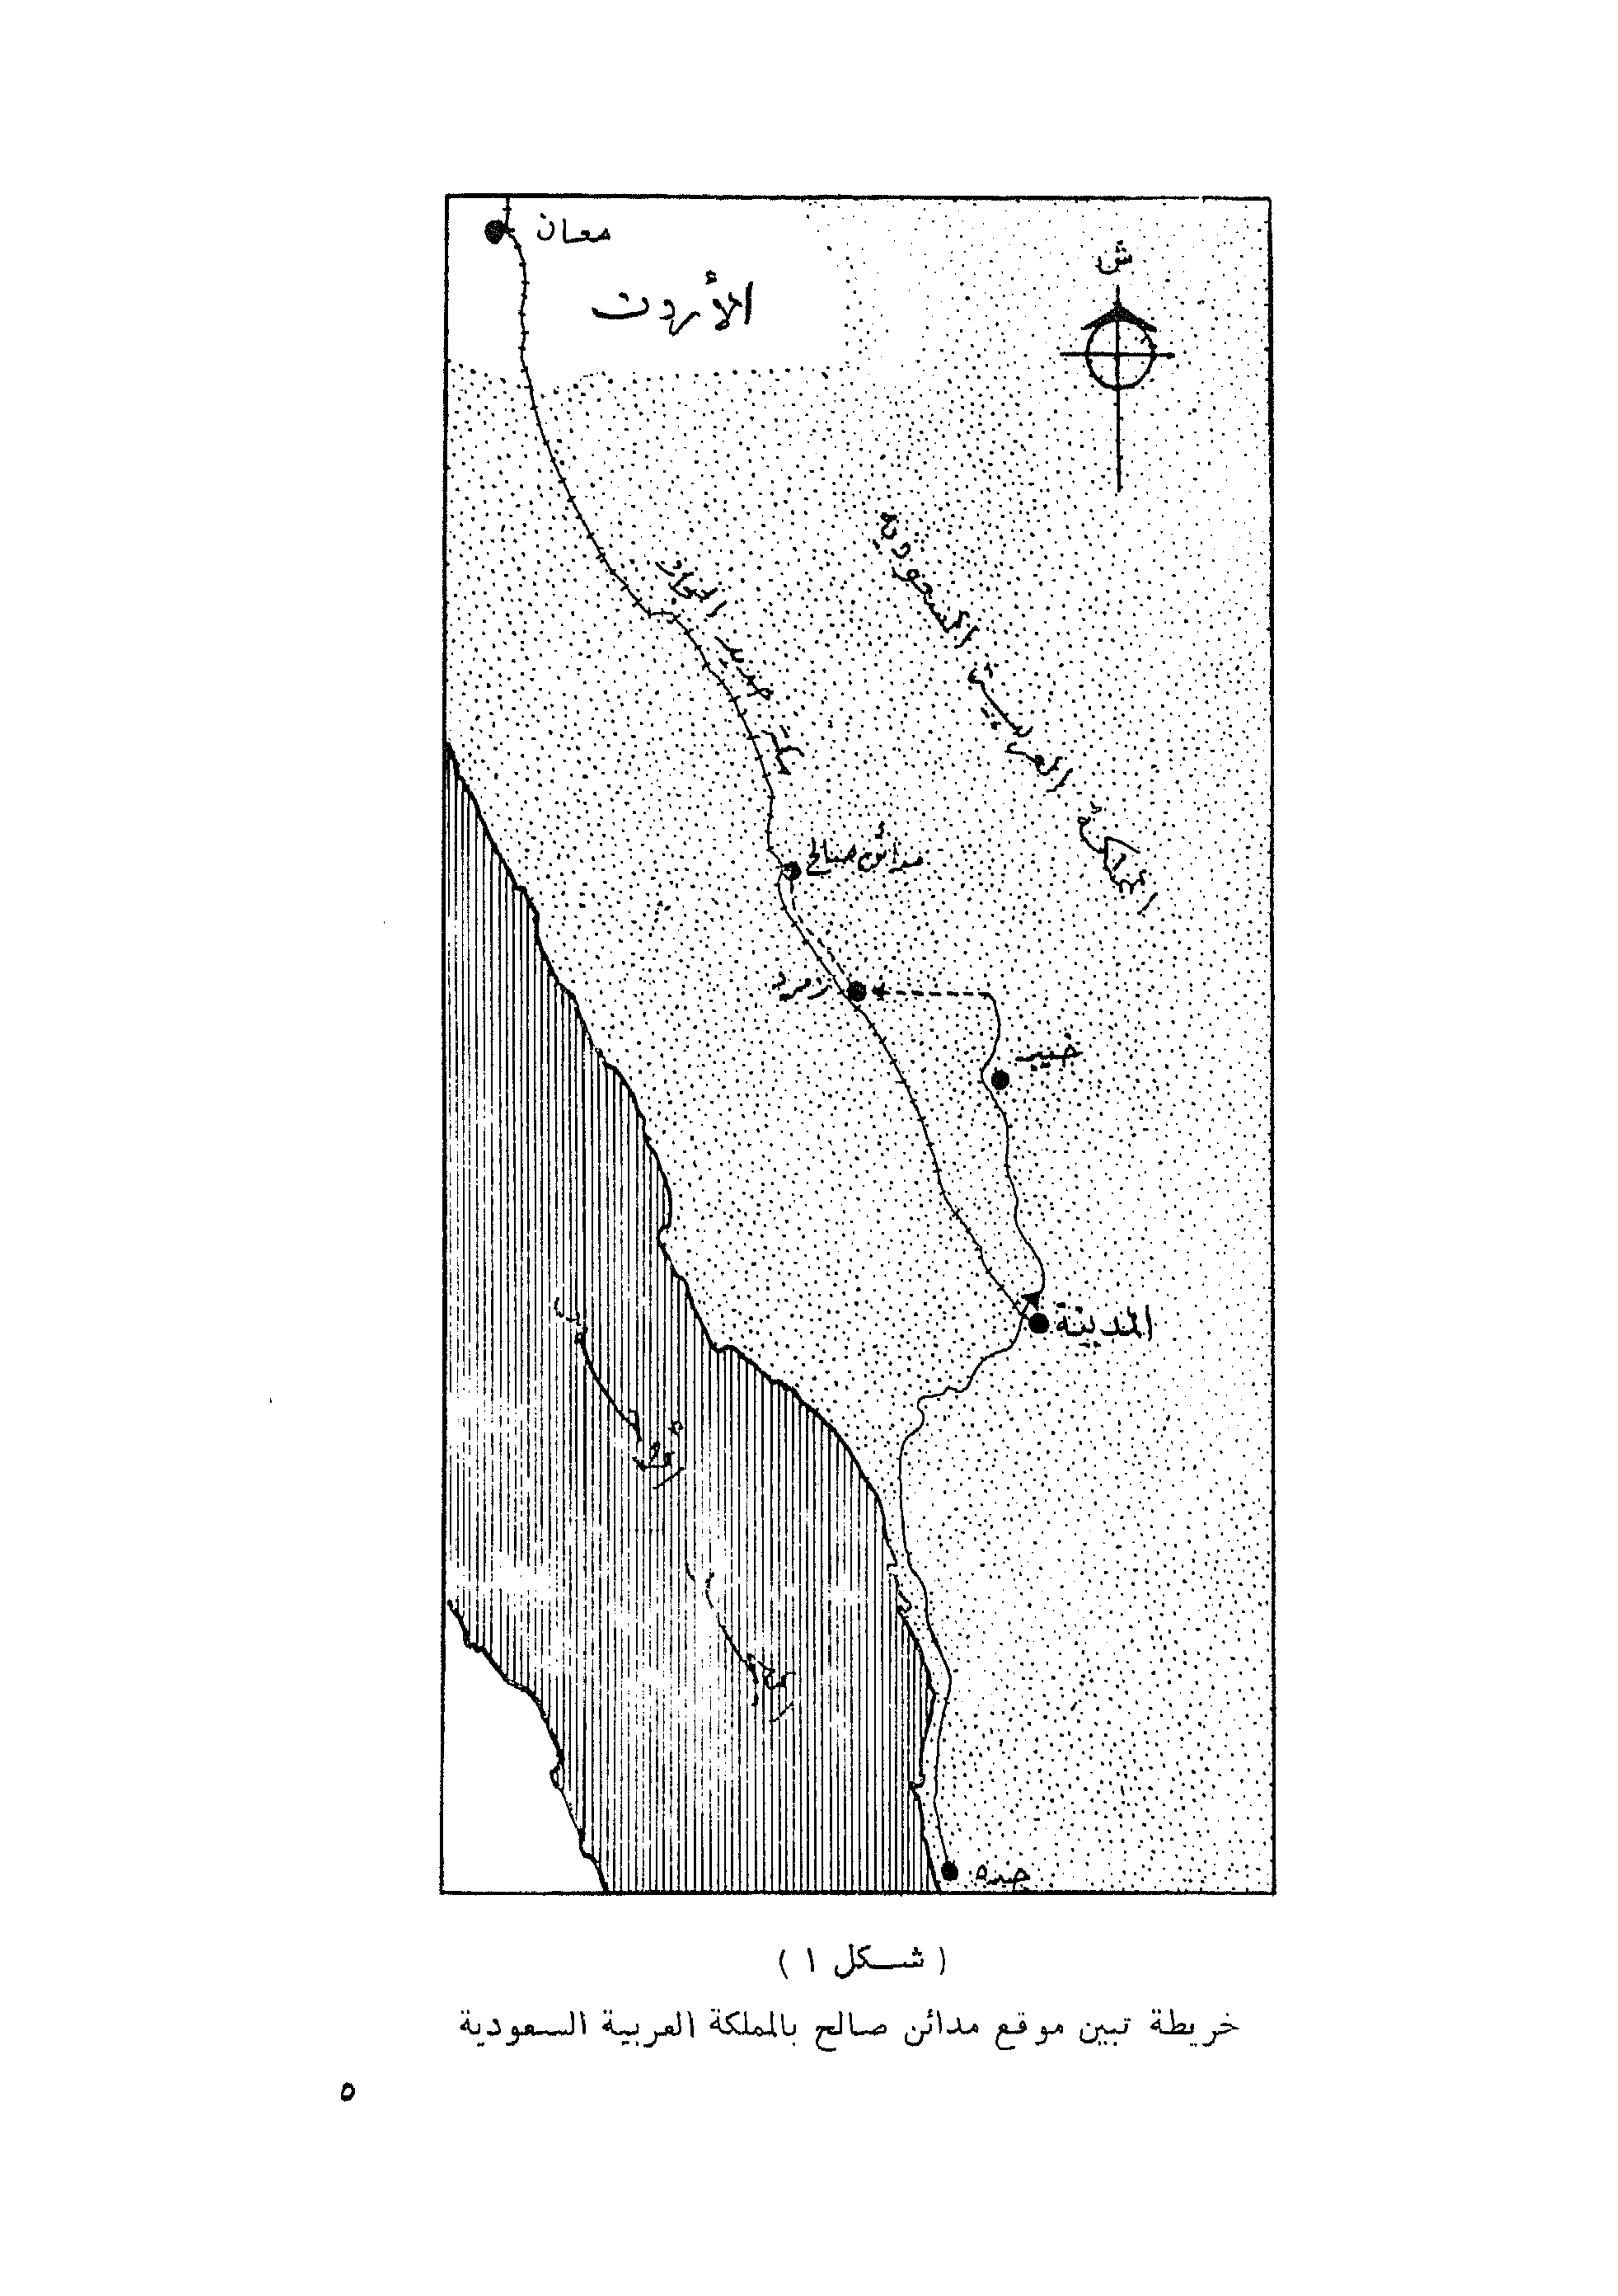 معان
الأردن
ش
المملكة العربية السعودية
سكة حديد الحجاز
مدائن صالح
زمرد
خيبر
المدينة
البحر الأحمر
جده
( شكل ١ )
خريطة تبين موقع مدائن صالح بالمملكة العربية السعودية
٥